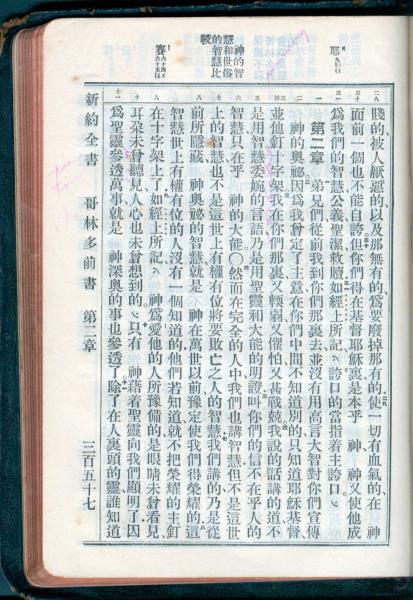 神的智
慧和世俗
的智慧比
較
賤的被人厭惡的、以及那無有的、爲要廢掉那有的、使一切有血氣的、在 神
面前一個也不能自誇但你們得在基督耶穌裏是本乎 神、 神又使他成
爲我們的智慧公義聖潔救贖如經上所記誇口的當指着主誇口
第二章 弟兄們從前我到你們那裏去、並沒有用高言大智對你們宣傳
神的奧祕因爲我曾定了主意在你們中間不知道別的只知道耶穌基督、
並他釘十字架我在你們那裏又輭弱、又懼怕、又甚戰兢我說的話講的道不
是用智慧委婉的言語乃是用聖靈和大能的明證叫你們的信不在乎人的
智慧只在乎 神的大能○然而在完全的人中我們也講智慧但不是這世
上的智慧也不是這世上有權有位將要敗亡之人的智慧我們講的乃是從
前所隱藏、 神奧祕的智慧就是 神在萬世以前豫定使我們得榮耀的這
智慧世上有權有位的人沒有一個知道的他們若知道就不把榮耀的主釘
在十字架上了如經上所記 神爲愛他的人所豫備的是眼睛未曾看見、
耳朵未曾聽見人心也未曾想到的只有 神藉着聖靈向我們顯明了因
爲聖靈參透萬事就是 神深奧的事也參透了除了在人裏頭的靈誰知道
新約全書 哥林多前書 第二章 三百五十七